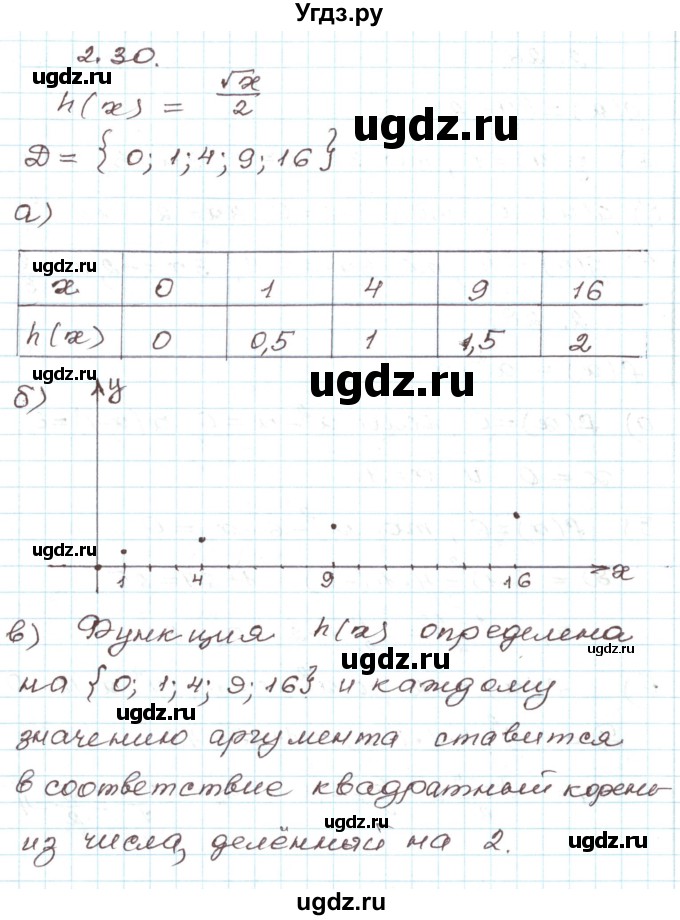 Угдз.ру
2.30.
ugdz.ru
h(x) = √x/2
ugdz.ru
D = { 0; 1; 4; 9; 16 }
а)
ugdz.ru
x 0 1 4 9 16
h(x) 0 0,5 1 1,5 2
ugdz.ru
ugdz.ru
б) y
ugdz.ru
ugdz.ru
1 4 9 16 x
в) Функция h(x) определена
ugdz.ru
ugdz.ru
на {0; 1; 4; 9; 16} и каждому
ugdz.ru
значению аргумента ставится
в соответствие квадратный корень
ugdz.ru
ugdz.ru
из числа, делённый на 2.
ugdz.ru
ugdz.ru